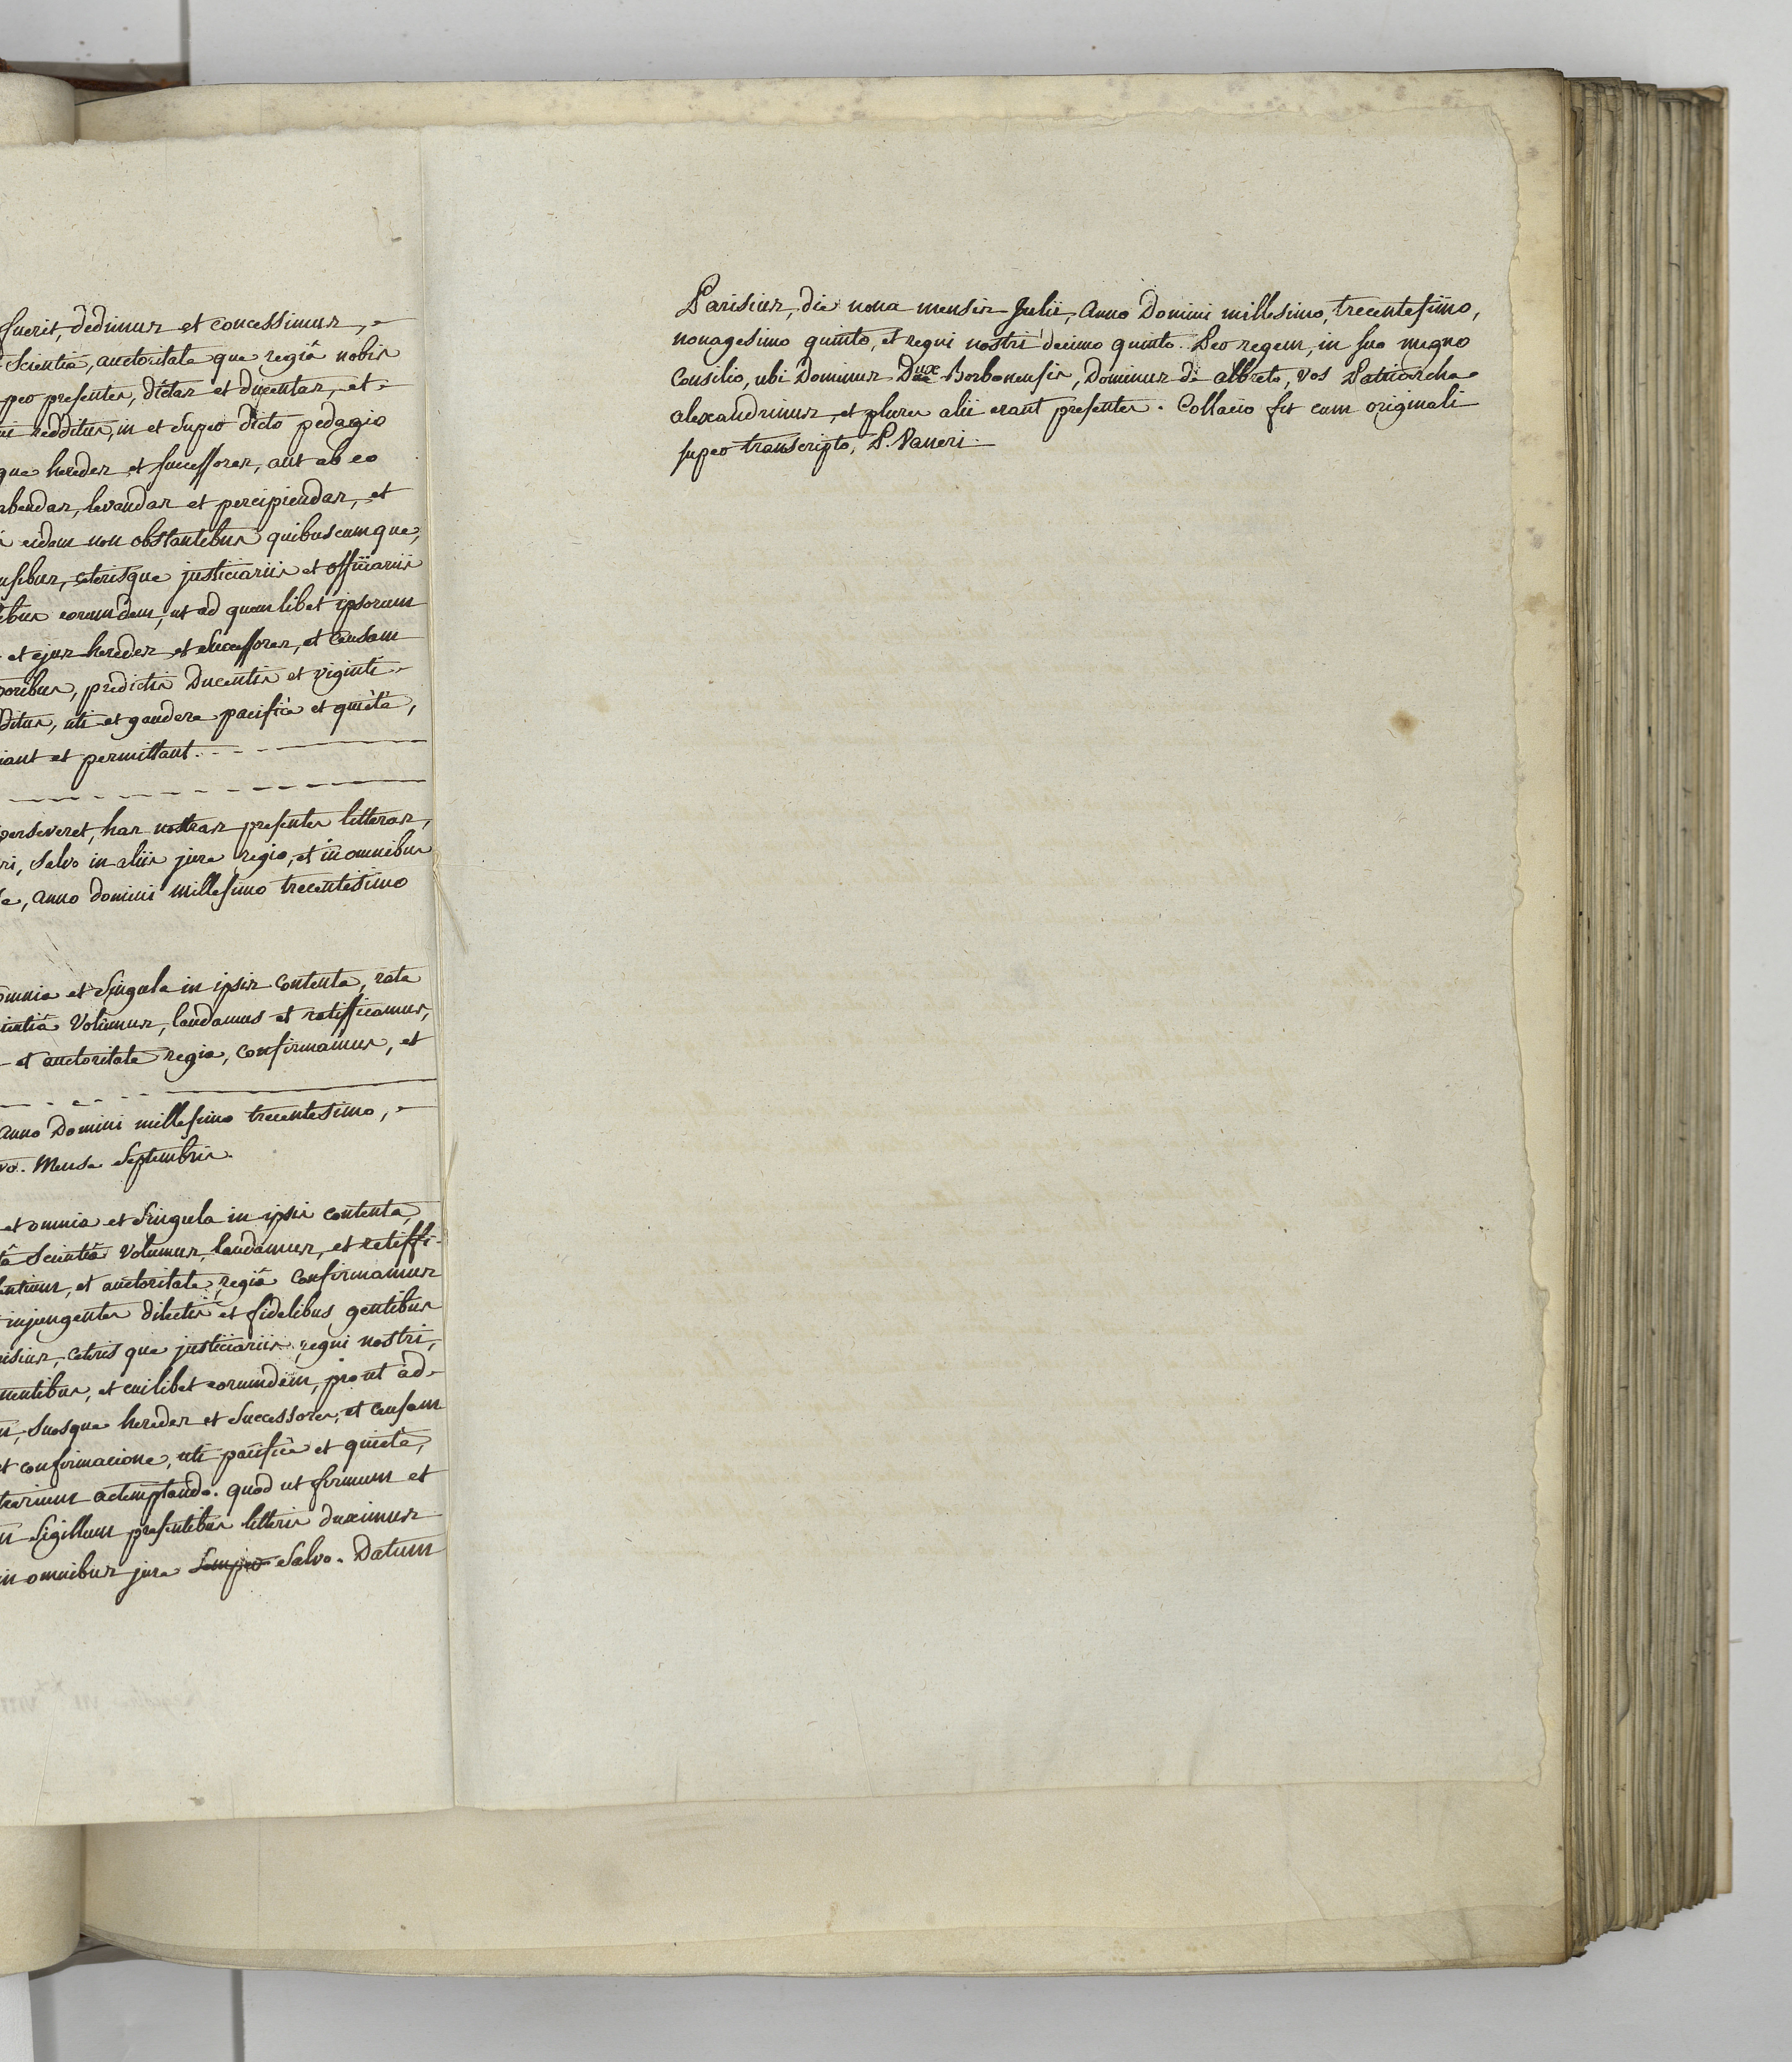 fuerit, dedimus et concessimus,
scientia, auctoritate que regiâ nobis
per presentes, dictas et ducentas, et
redditus, in et super dicto pedagio
que heredes et successores, aut ab eo
abendas, levandas et percipiendas, et
eidem non obstantibus quibuscumque,
ceterisque justiciariis et officiariis
eorumdem, ut ad quemlibet ipsorum
et ejus heredes et successores, et causam
predictis ducentis et viginti
uti et gaudere pacificè et quietè,
iant et permittant.
perseveret, has nostras presentes litteras,
ri, salvo in aliis jure regio, et in omnibus
anno domini millesimo trecentesimo
omnia et singula in ipsis contenta, rata
volumus, laudamus et ratifficamus,
et auctoritate regia, confirmamus, et
anno Domini millesimo trecentesimo,
vo. Mense Septembris.
et omnia et singula in ipsis contenta,
scientiâ volumus, laudamus, et ratiffi-
et auctoritate regiâ confirmamus
injungentes dilectis et fidelibus gentibus
ceteris que justiciariis regni nostri,
et cuilibet eorumdem, prout ad
suosque heredes et successores, et causam
et confirmacione, uti pacificè et quietè,
actemptando. quod ut firmum et
sigillum presentibus litteris duximus
in omnibus jure semper salvo. Datum
Parisius, die nona mensis Julii, anno Domini millesimo, trecentesimo,
nonagesimo quinto, et regni nostri decimo quinto. Per regem, in suo magno
Consilio, ubi Dominus Dux Borbonensis, Dominus de albreto, vos Patriarcha
alexandrinus, et plures alii erant presentes. Collacio fit cum originali
super transcripto, P. Vaneri.